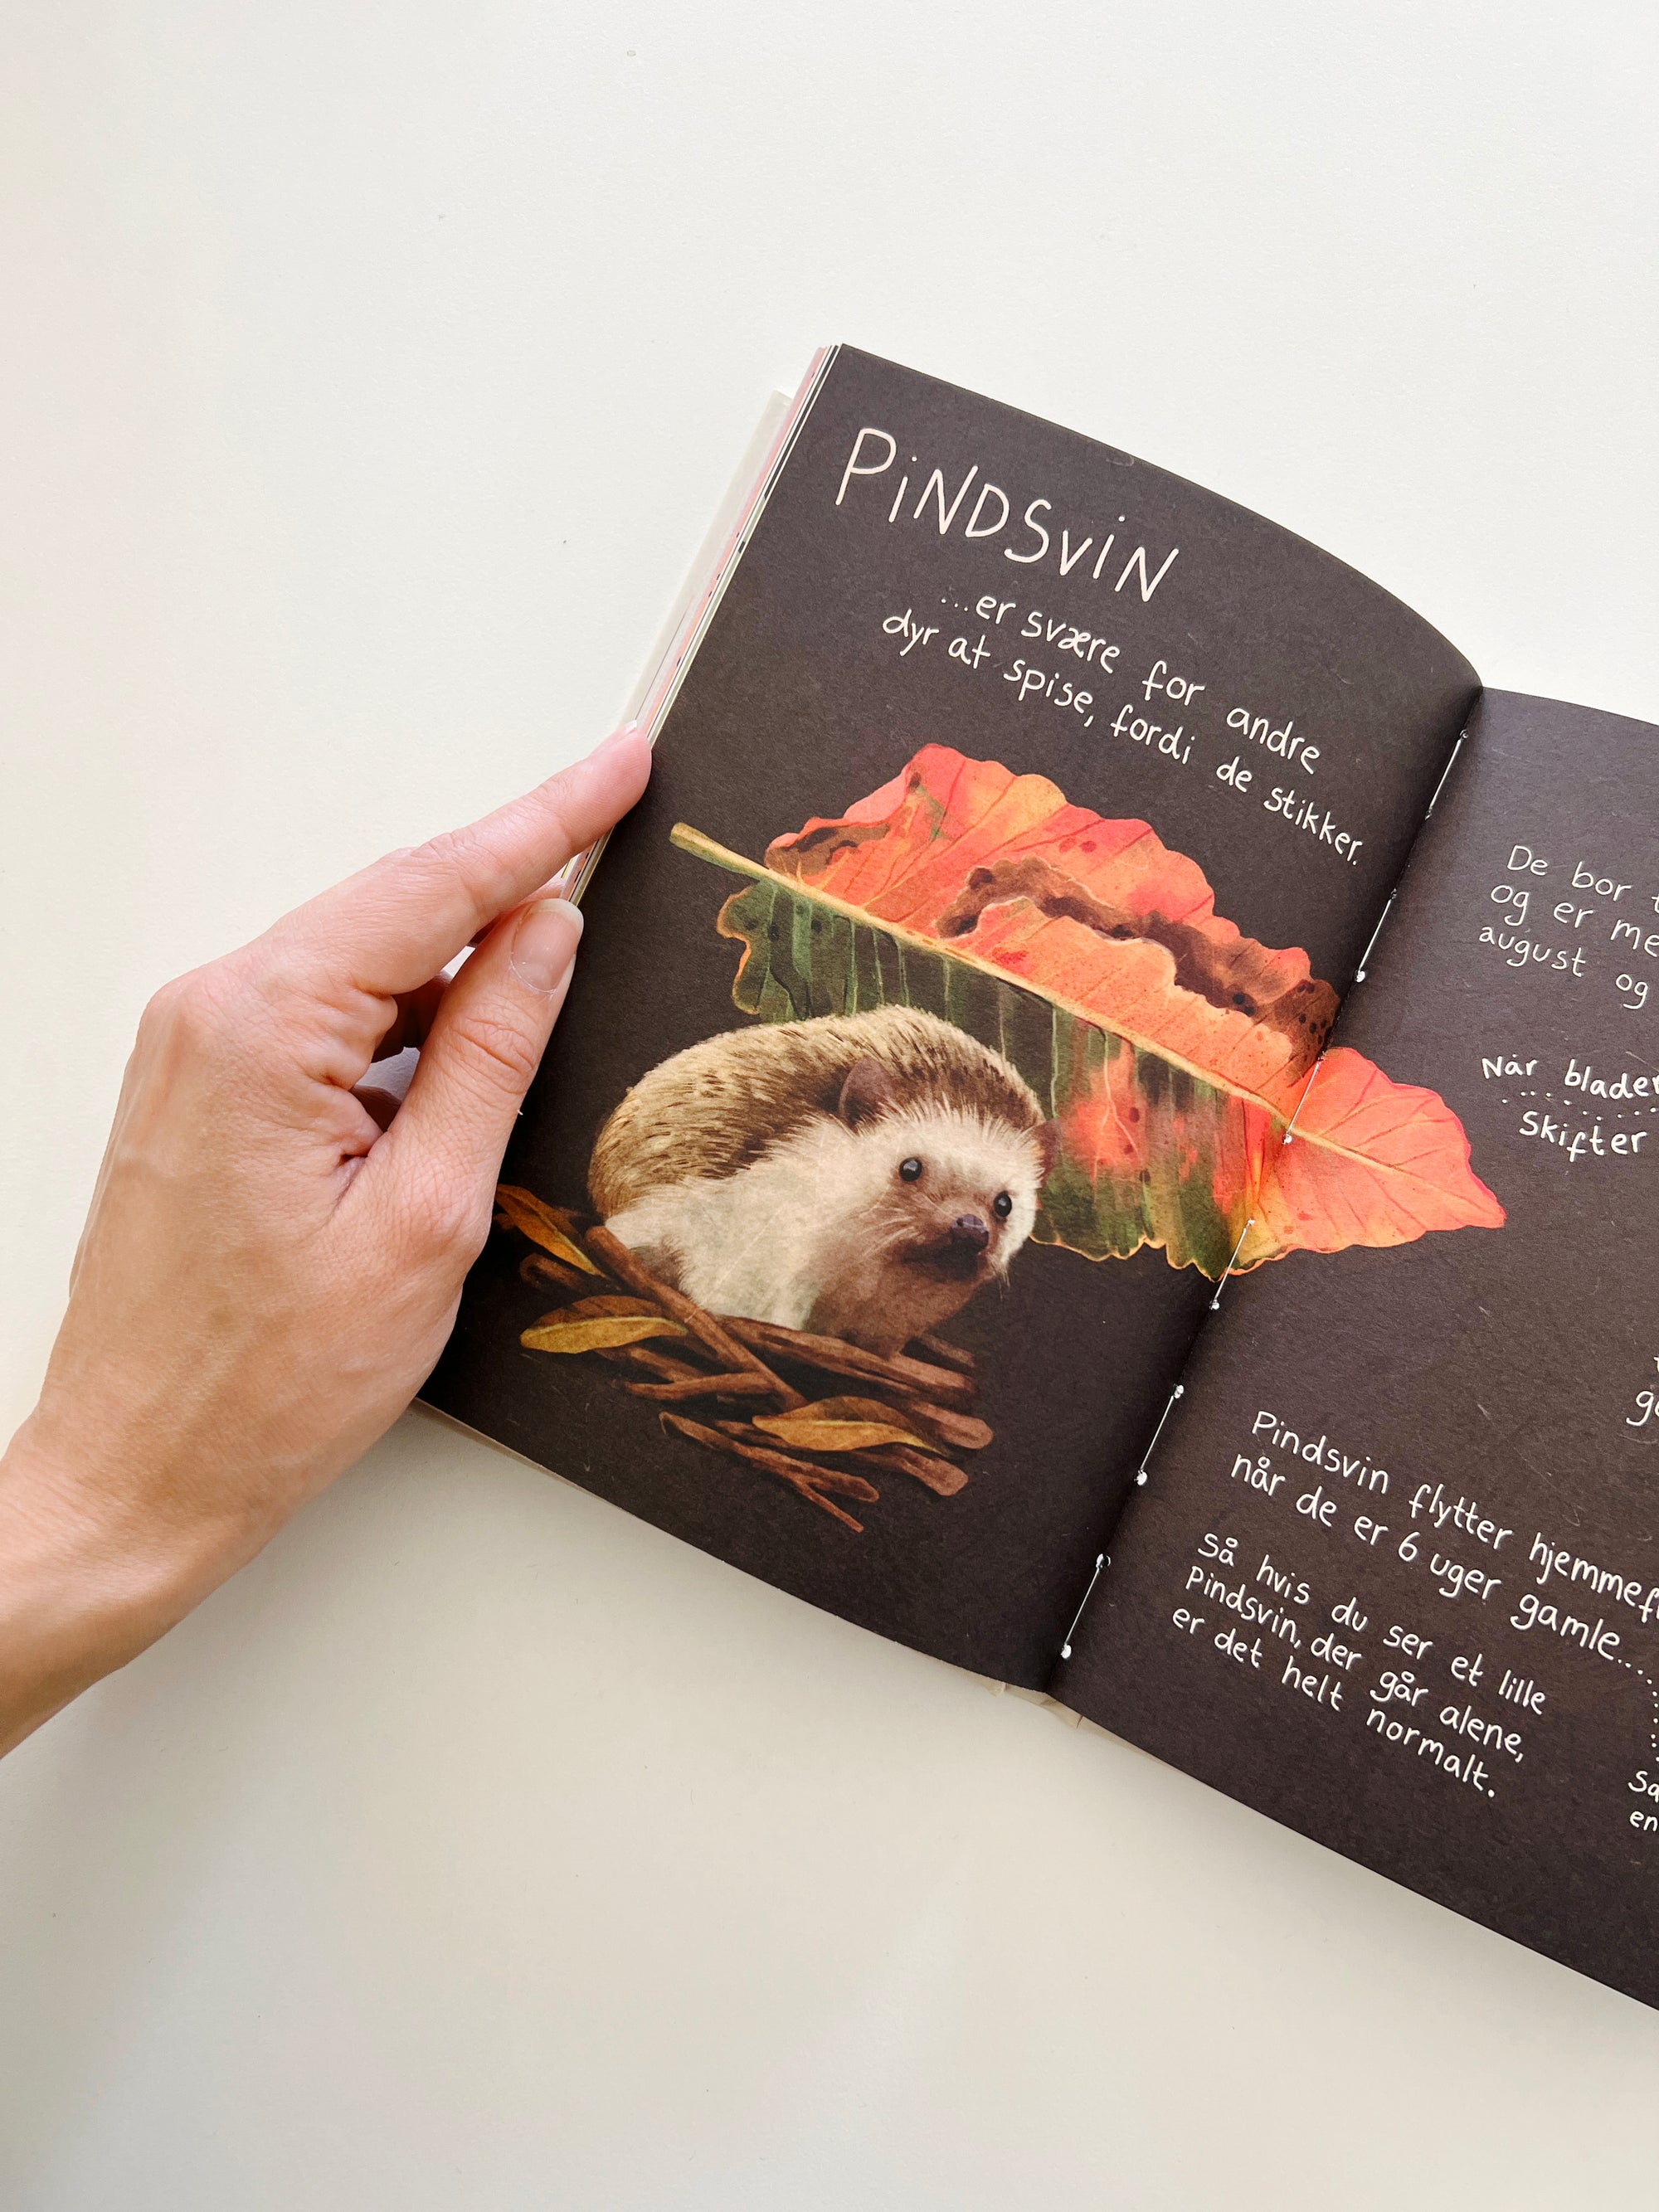 PiNDSViN
...er svære for andre
dyr at spise, fordi de stikker.
De bor
og er
august og
Når
Skifter
Pindsvin flytter
når de er 6 uger gamle...
Så hvis du ser et lille
pindsvin, der går alene,
er det helt normalt.